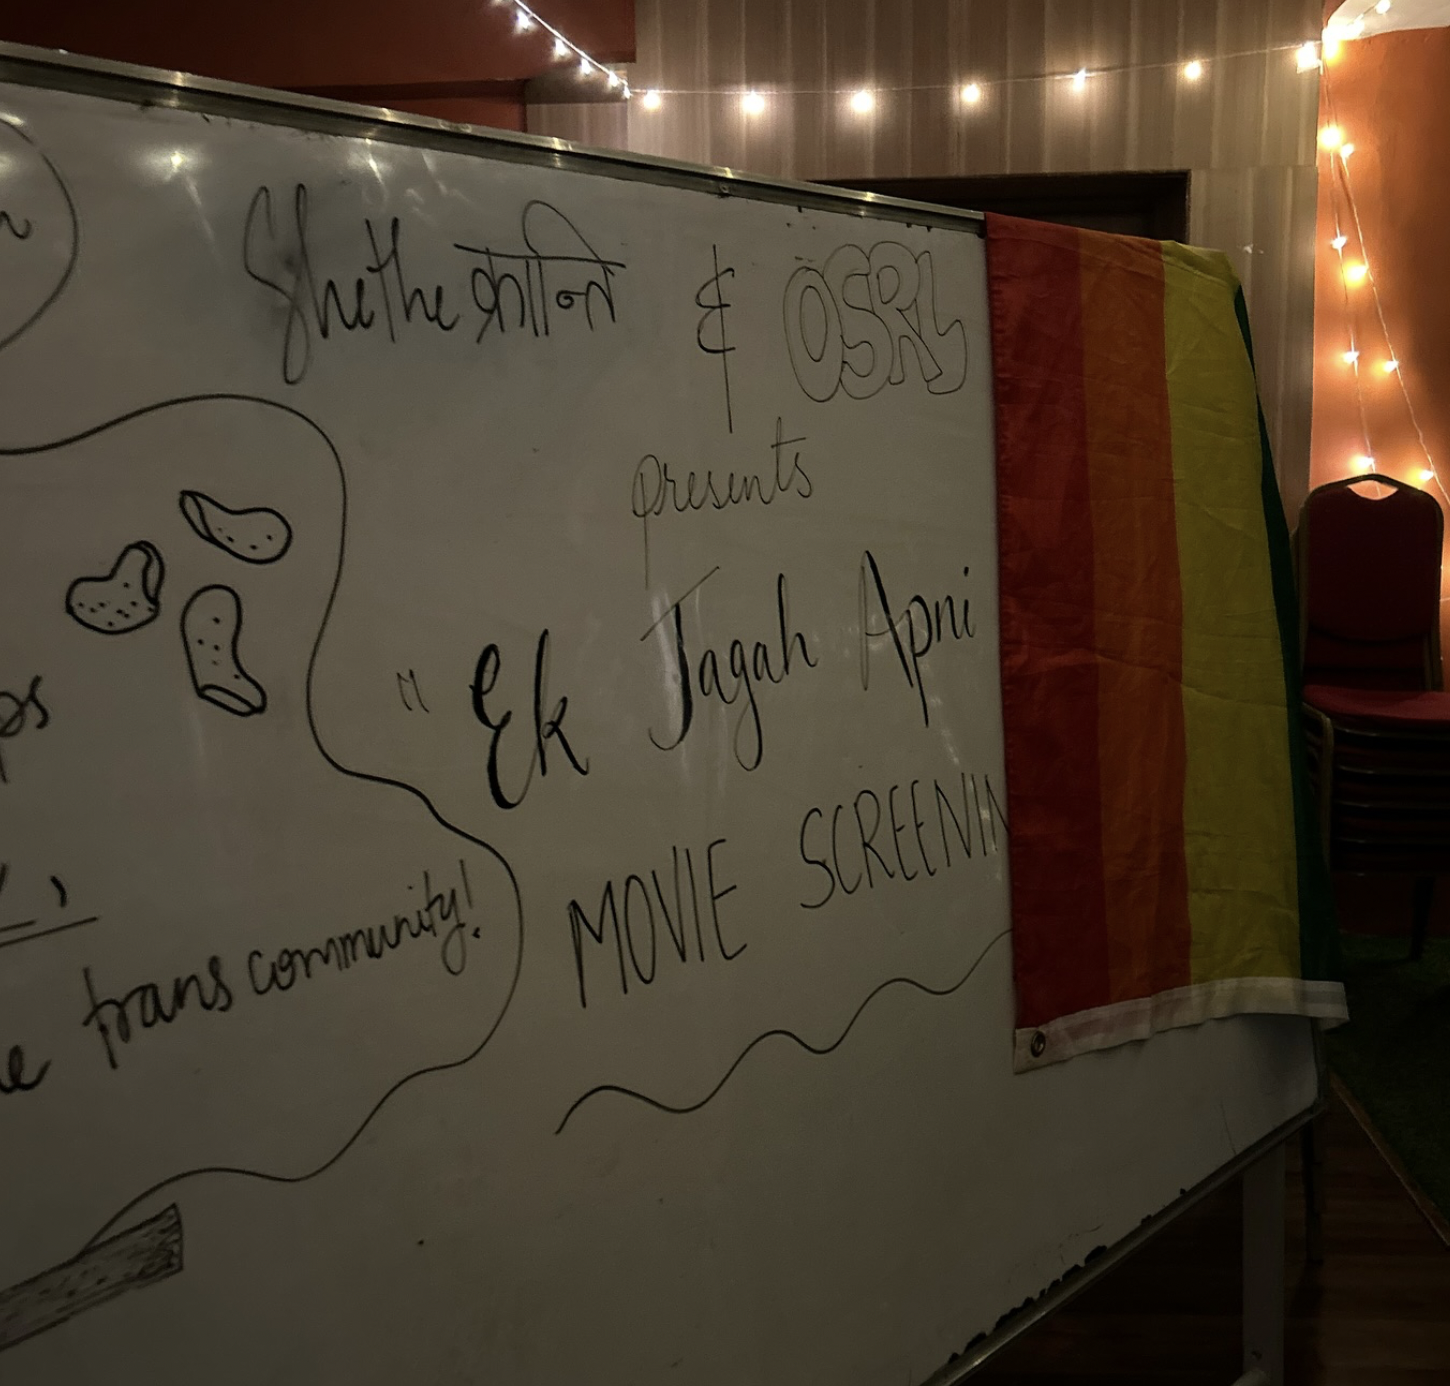 Shethe क्रान्ति & OSRL
presents
"Ek Jagah Apni
MOVIE SCREENIN
ps
trans community!